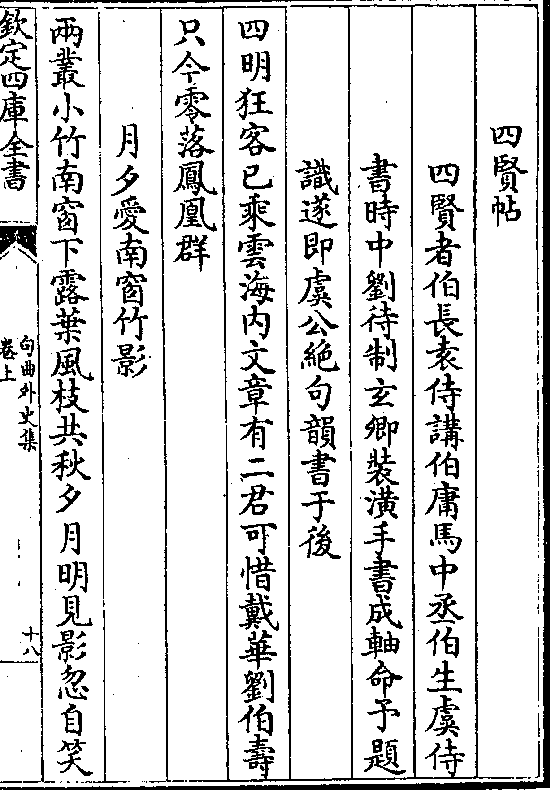 四賢帖
四賢者伯長袁侍講伯庸馬中丞伯生虞侍
書時中劉待制玄卿裝潢手書成軸命予題
識遂即虞公絶句韻書于後
四明狂客已乘雲海内文章有二君可惜戴華劉伯壽
只今零落鳳凰群
月夕愛南窗竹影
兩叢小竹南窗下露葉風枝共秋夕月明見影忽自笑
欽定四庫全書
句曲外史集
卷上
十八